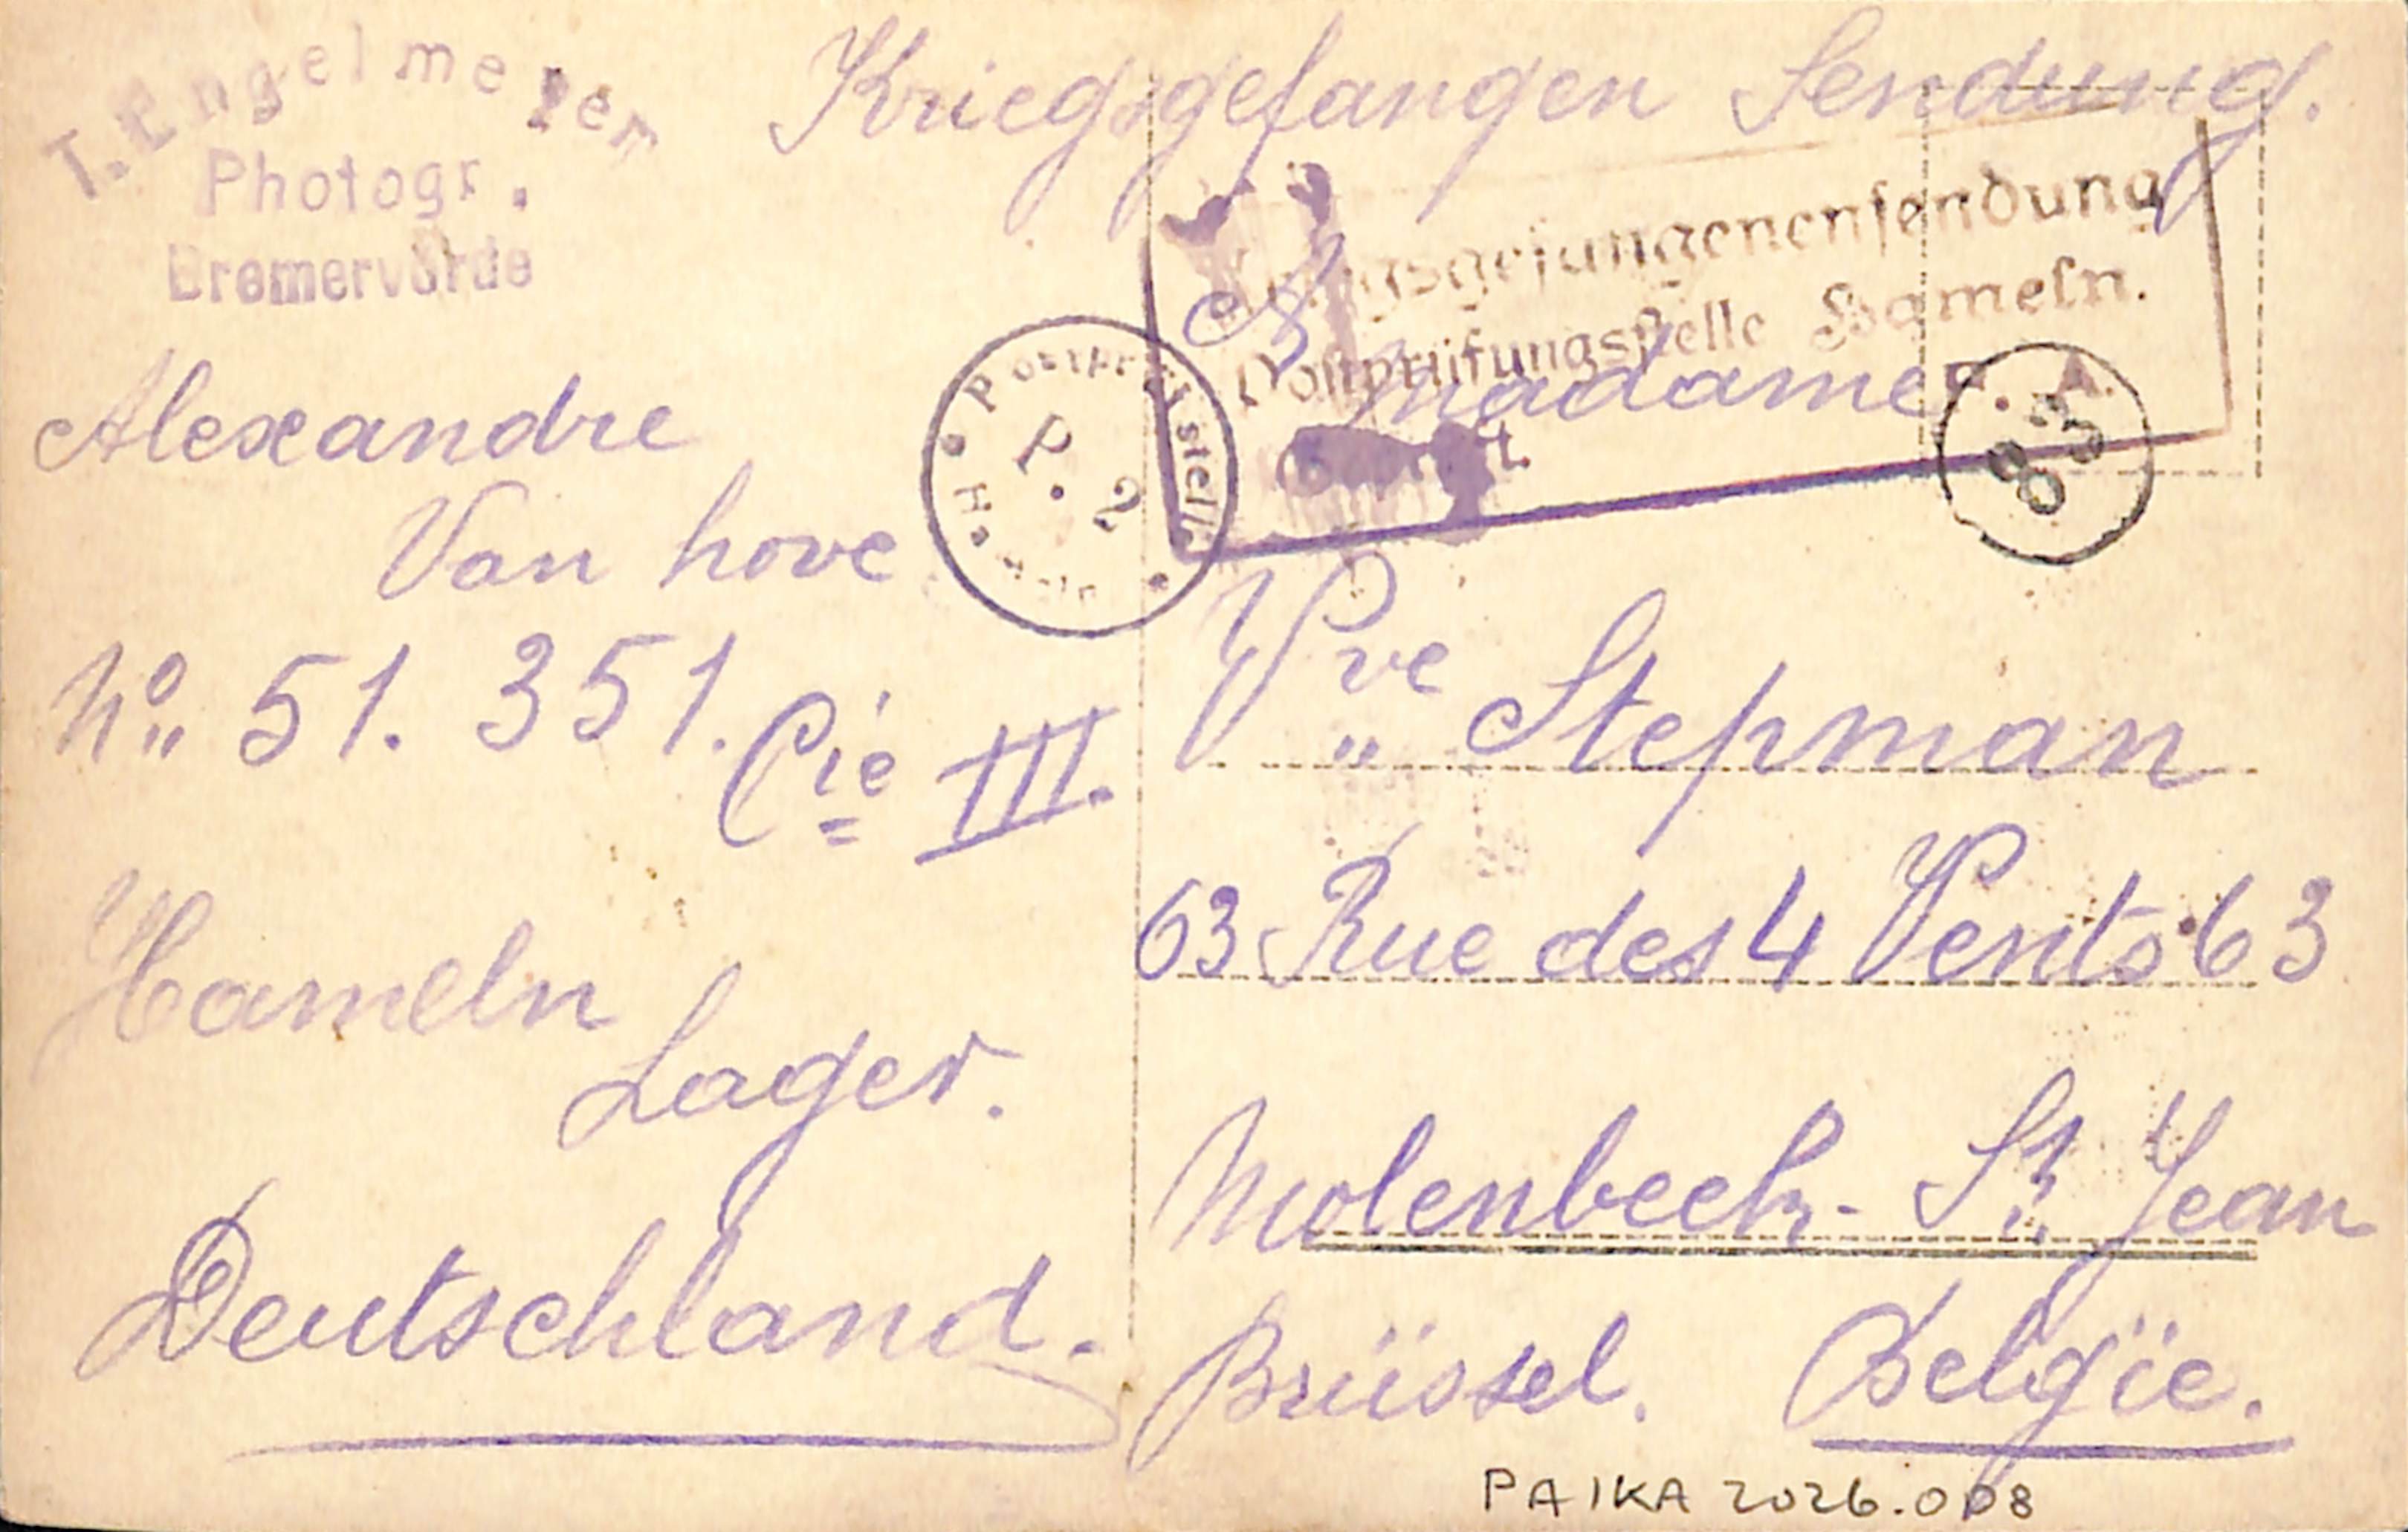 T. Engelmeyer
Photogr.
Bremervörde
Kriegsgefangen Sendung.
Kriegsgefangenensendung
Postprüfungsstelle Hameln.
Geprüft.
Poststelle
P. 2
F. A.
83
Alexandre
Van hove
No 51. 351. Cie III.
Hameln
Lager.
Deutschland.
A
madame
Vve Stepman
63 Rue des 4 Vents 63
Molenbeek - St Jean
Brüssel. Belgïe.
PAIKA 2026.008